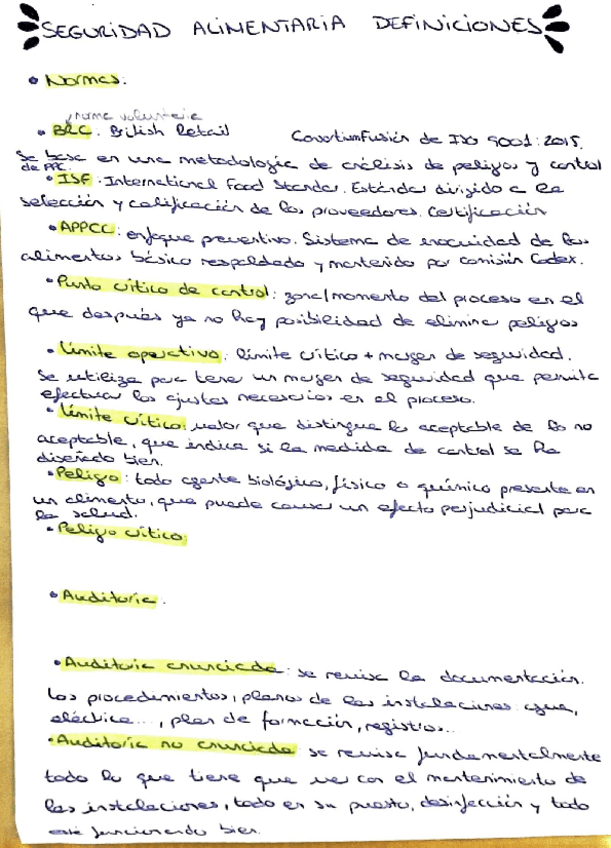 SEGURIDAD ALIMENTARIA DEFINICIONES
• Normas:
norma voluntaria
• BRC. British Retail Consortium Fusión de ISO 9001:2015.
Se basa en una metodología de análisis de peligros y control
de PPC
• ISF: International Food Standar. Estándar dirigido a la
selección y calificación de los proveedores. Certificación
• APPCC: enfoque preventivo. Sistema de inocuidad de los
alimentos básico respaldado y mantenido por comisión Codex.
• Punto crítico de control: zona/momento del proceso en el
que después ya no hay posibilidad de eliminar peligros
• Límite operativo: límite crítico + margen de seguridad.
Se utiliza para tener un margen de seguridad que permita
efectuar los ajustes necesarios en el proceso.
• Límite crítico: valor que distingue lo aceptable de lo no
aceptable, que indica si la medida de control se ha
diseñado bien.
• Peligro: todo agente biológico, físico o químico presente en
un alimento, que puede causar un efecto perjudicial para
la salud.
• Peligro crítico:
• Auditoria.
• Auditoria anunciada: se revisa la documentación.
Los procedimientos, planos de las instalaciones: agua,
eléctrica..., plan de formación, registros...
• Auditoría no anunciada se revisa fundamentalmente
todo lo que tiene que ver con el mantenimiento de
las instalaciones, todo en su puesto, desinfección y todo
esté funcionando bien.